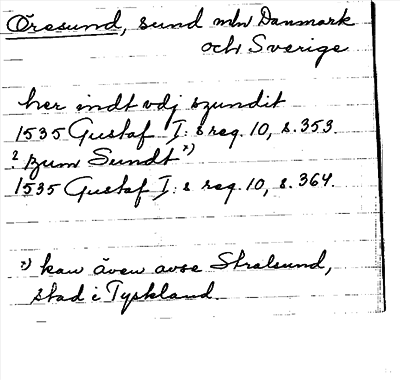 Öresund, sund mln Danmark
och Sverige
her indt vdj szundit
1535 Gustaf I:s reg. 10, s. 353.
? zum Sundt x)
1535 Gustaf I:s reg. 10, s. 364.
x) kan även avse Stralsund,
stad i Tyskland.